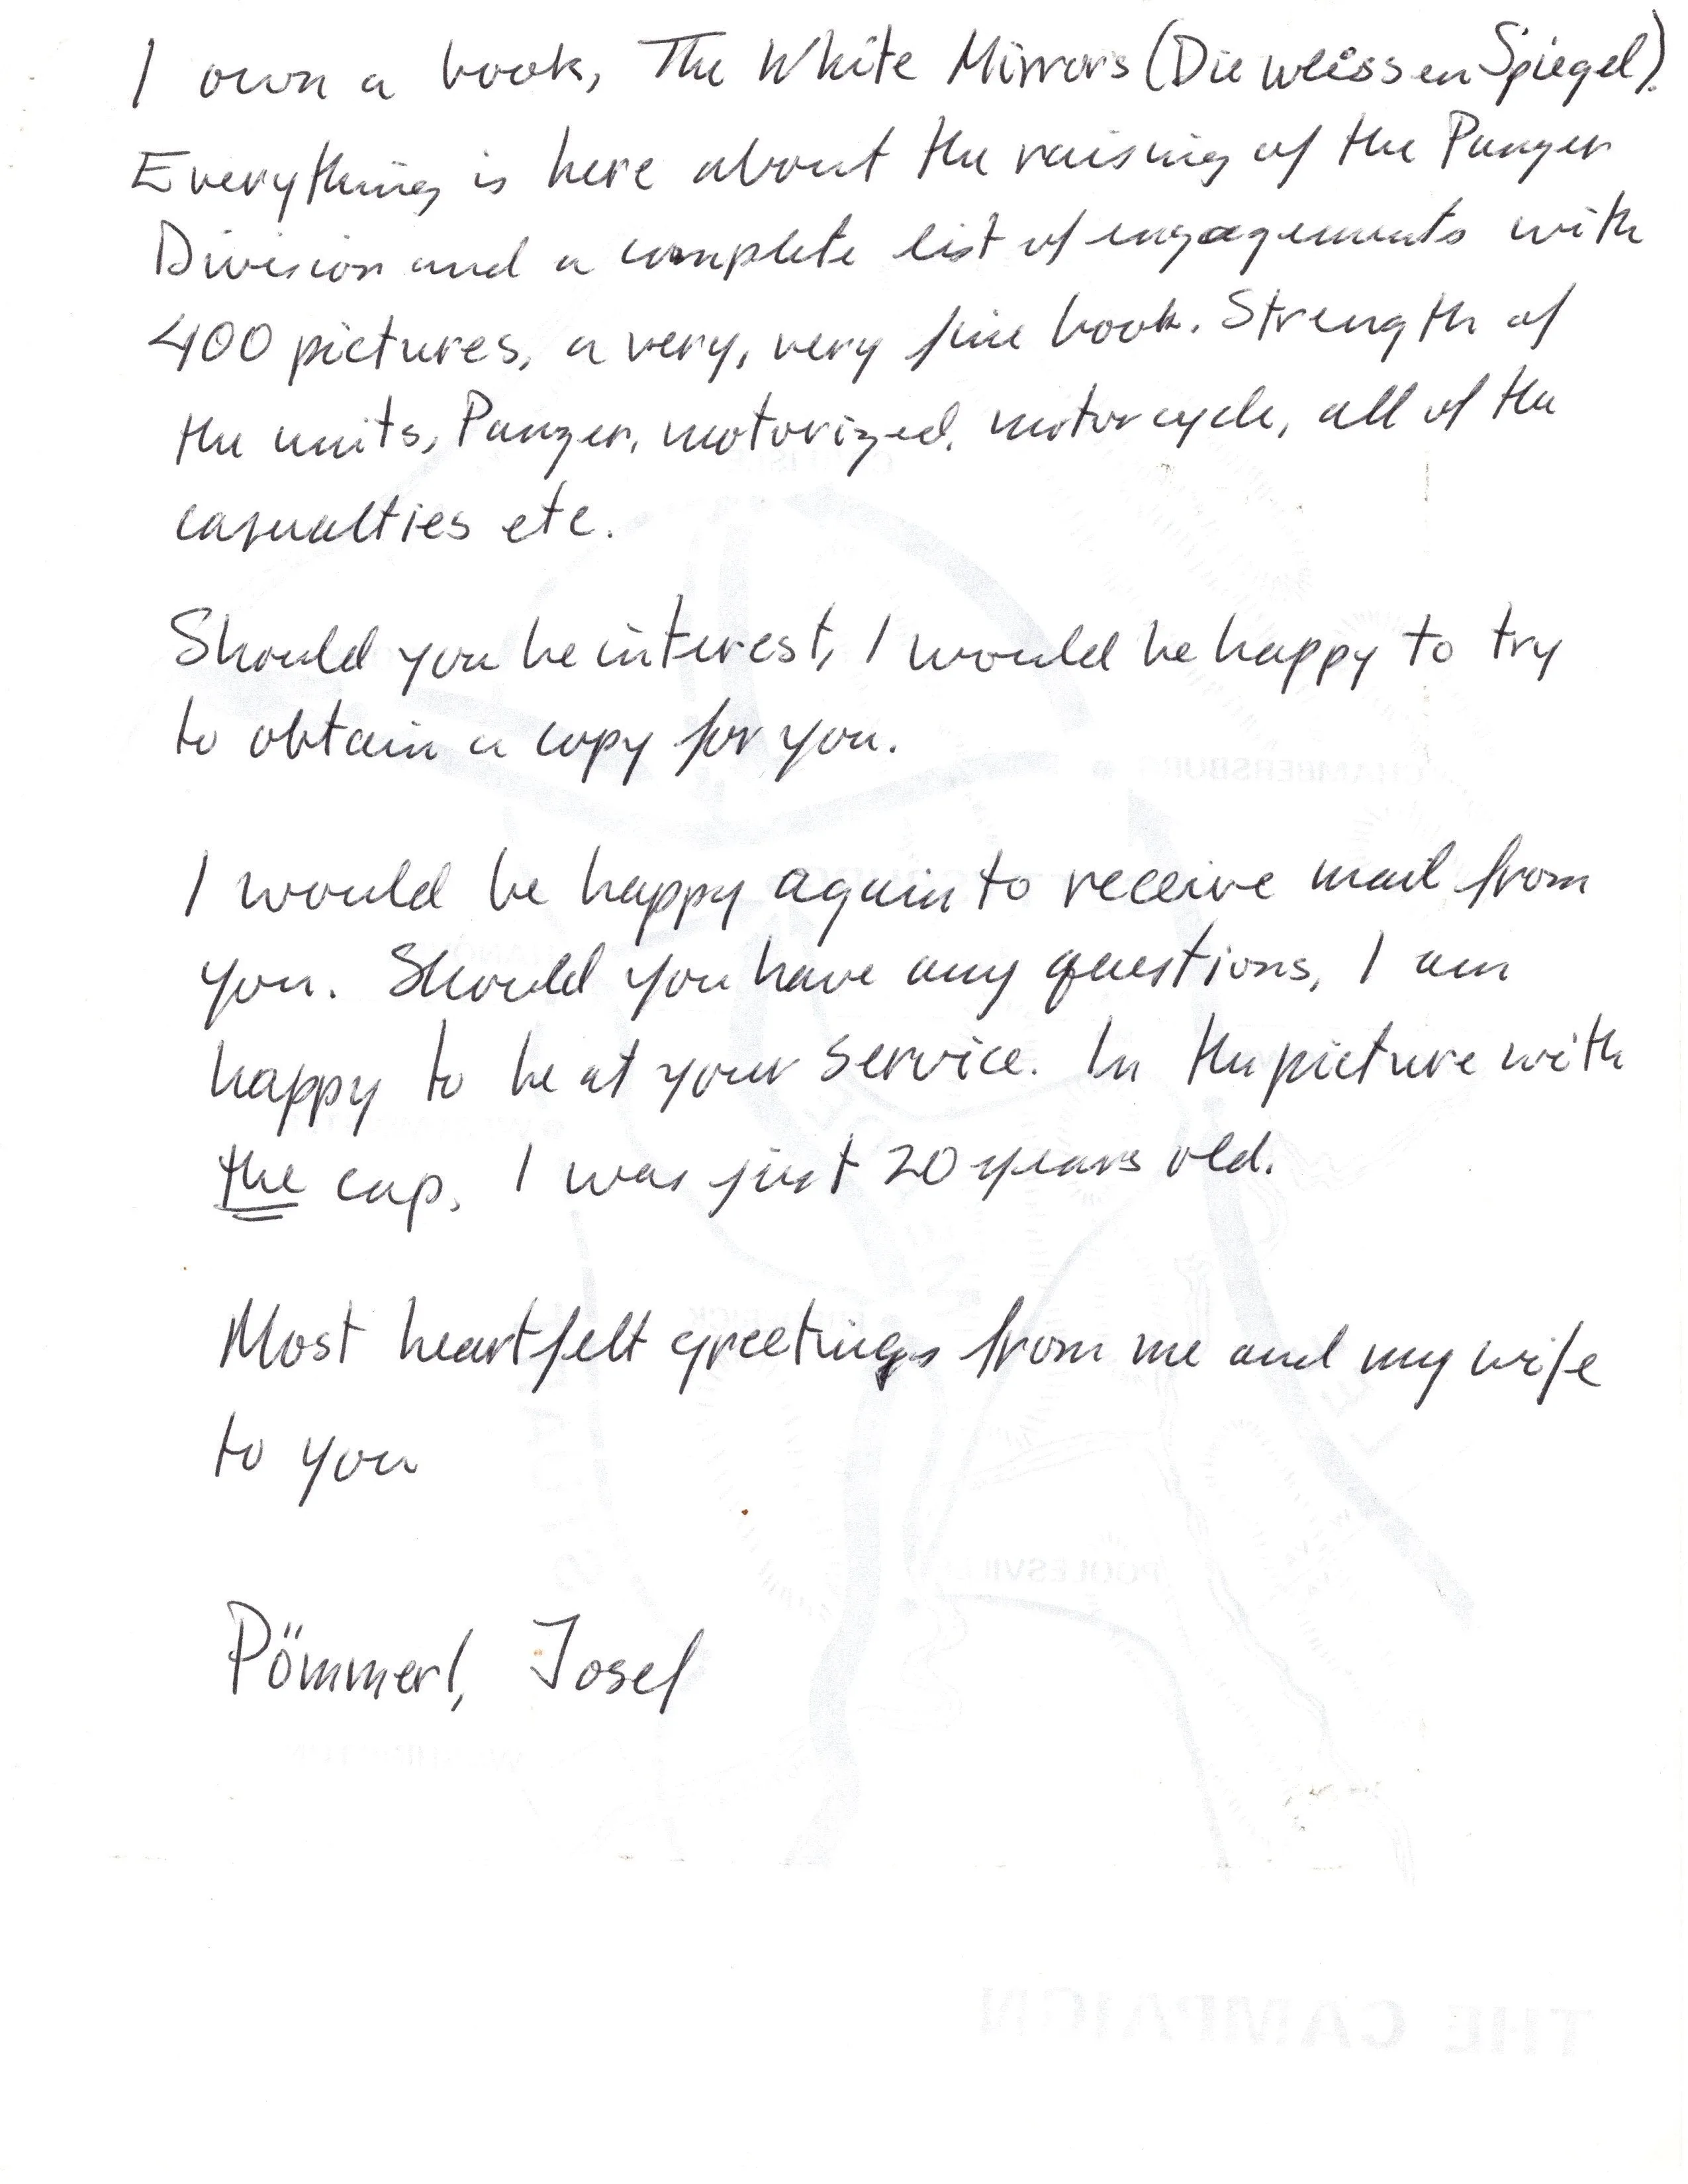 I own a book, The White Mirrors (Die weissen Spiegel).
Everything is here about the raising of the Panzer
Division and a complete list of engagements with
400 pictures, a very, very fine book. Strength of
the units, Panzer, motorized, motorcycle, all of the
casualties etc.
Should you be interest, I would be happy to try
to obtain a copy for you.
I would be happy again to receive mail from
you. Should you have any questions, I am
happy to be at your service. In the picture with
the cap, I was just 20 years old.
Most heartfelt greetings from me and my wife
to you
Pömmerl, Josef
CHAMBERSBURG
POOLESVILLE
THE CAMPAIGN